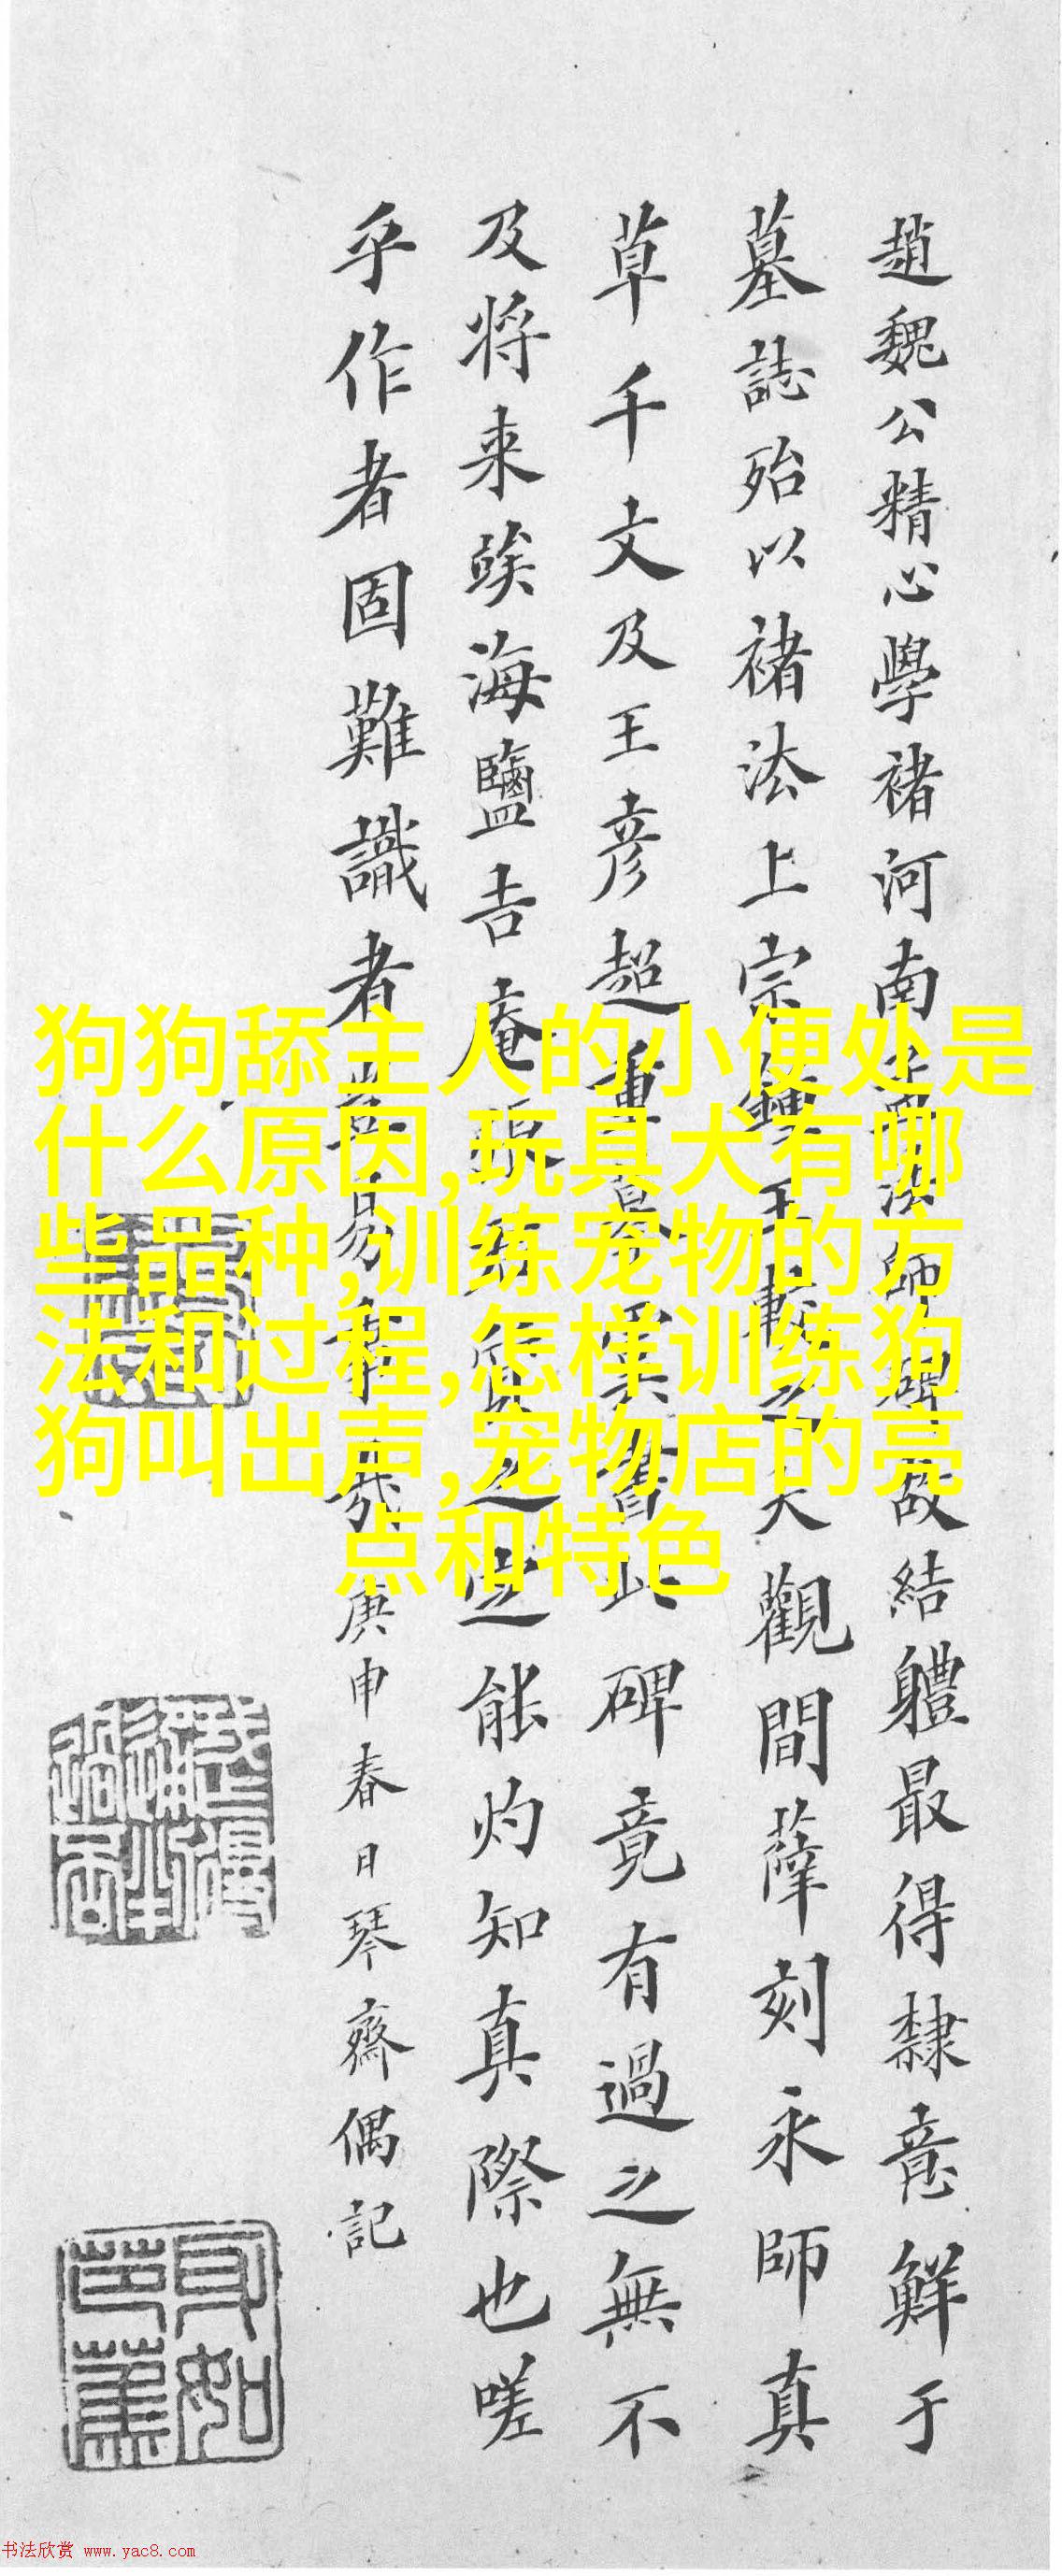 趙魏公精心學褚河南孟法師碑故結體最得隸意鮮于
墓誌殆以褚法上宗鍾王較之大觀間薛刻永師真
草千文及王彦超重摹虞書此碑竟有過之無不
及将来蓗海鹽吉庵琅
能灼知真際也嗟
乎作者固難識者豈易
哉
庚申春日琴齋偶記
狗狗舔主人的小便处是
什么原因,玩具犬有哪
些品种,训练宠物的方
法和过程,怎样训练狗
狗叫出声,宠物店的亮
点和特色
书法欣赏 www.yac8.com